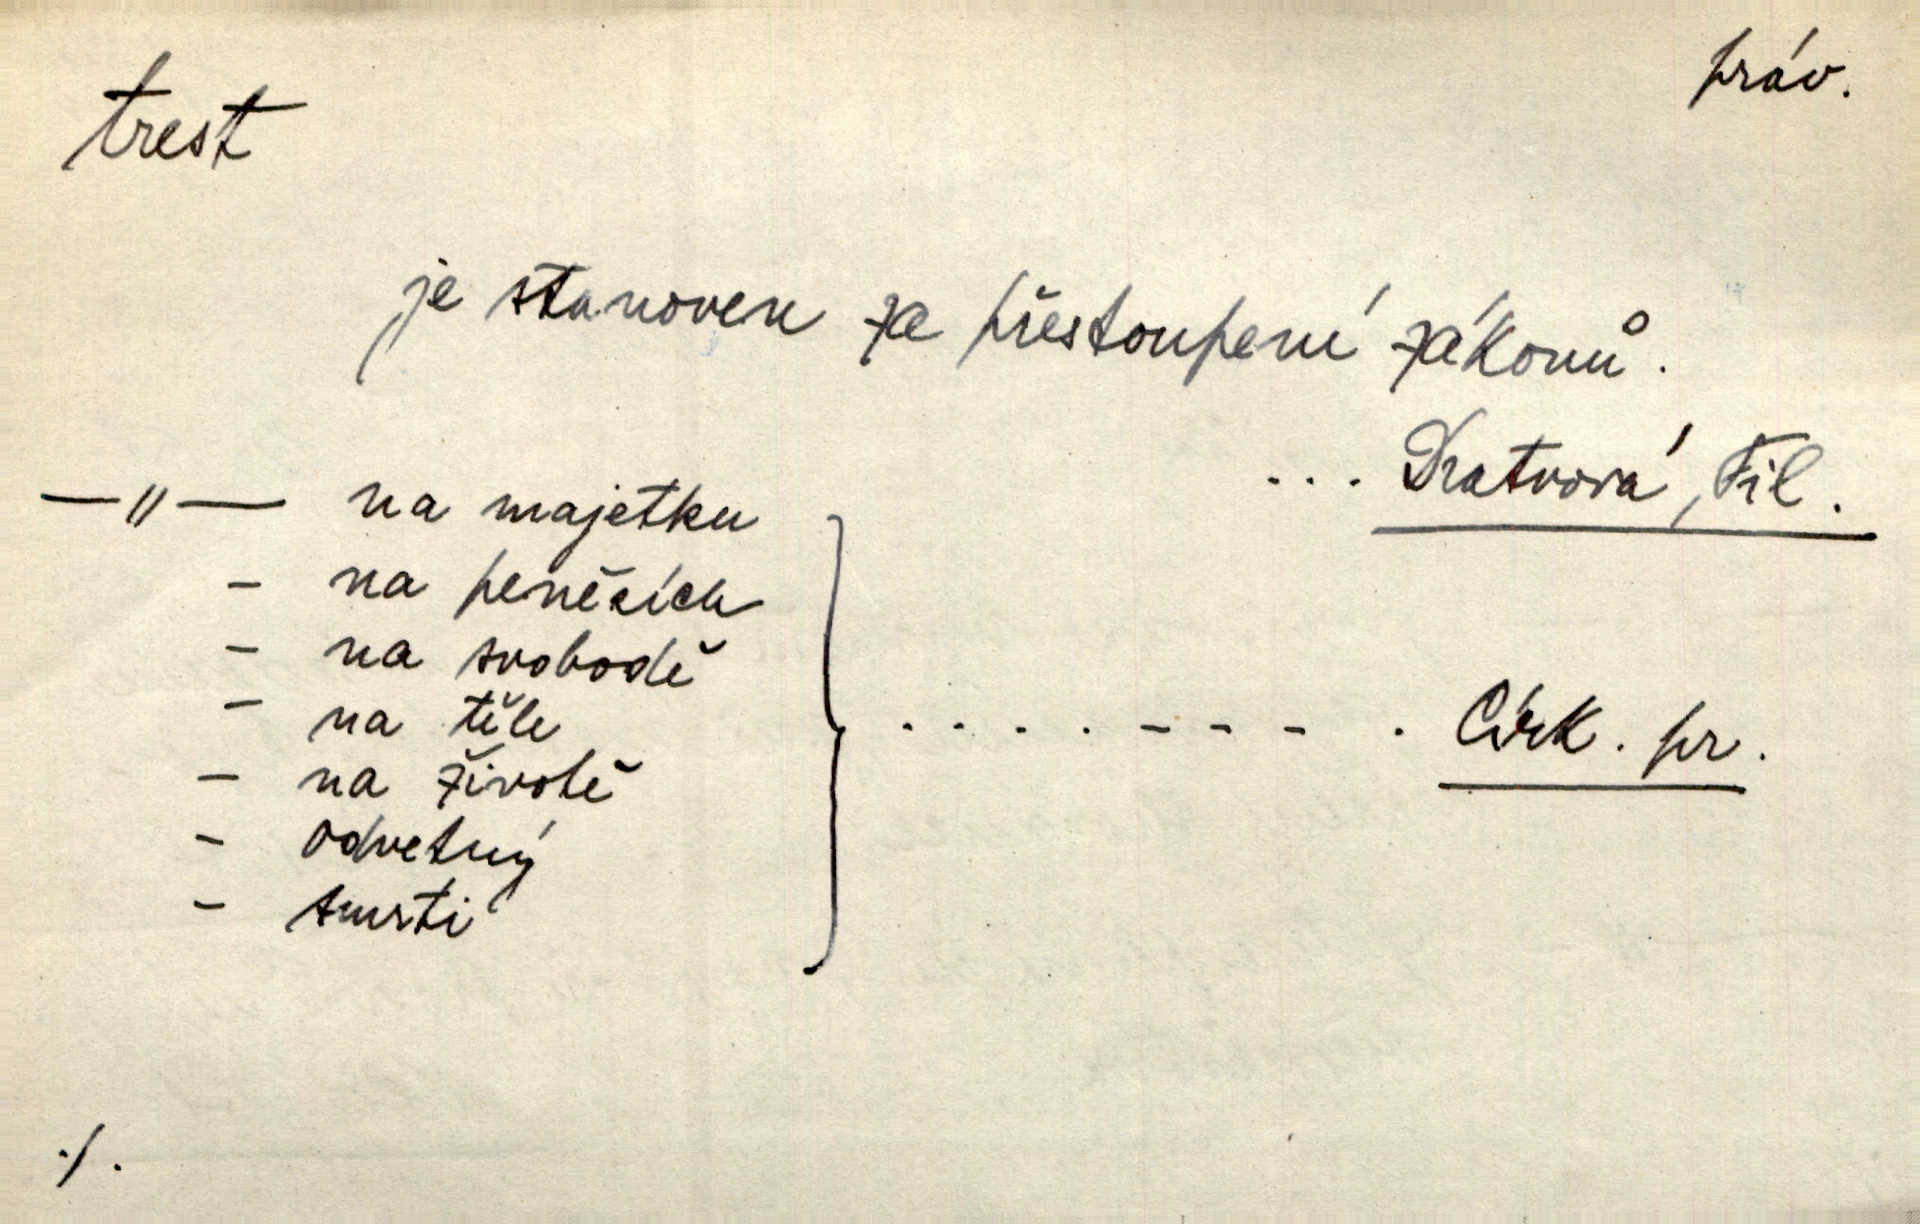 trest práv.
je stanoven za přestoupení zákonů.
... Dratvová, Fil.
—〃— na majetku
- na penězích
- na svobodě
- na těle
- na životě
- odvetný
- smrti
. . . . - - - . Círk. pr.
./.